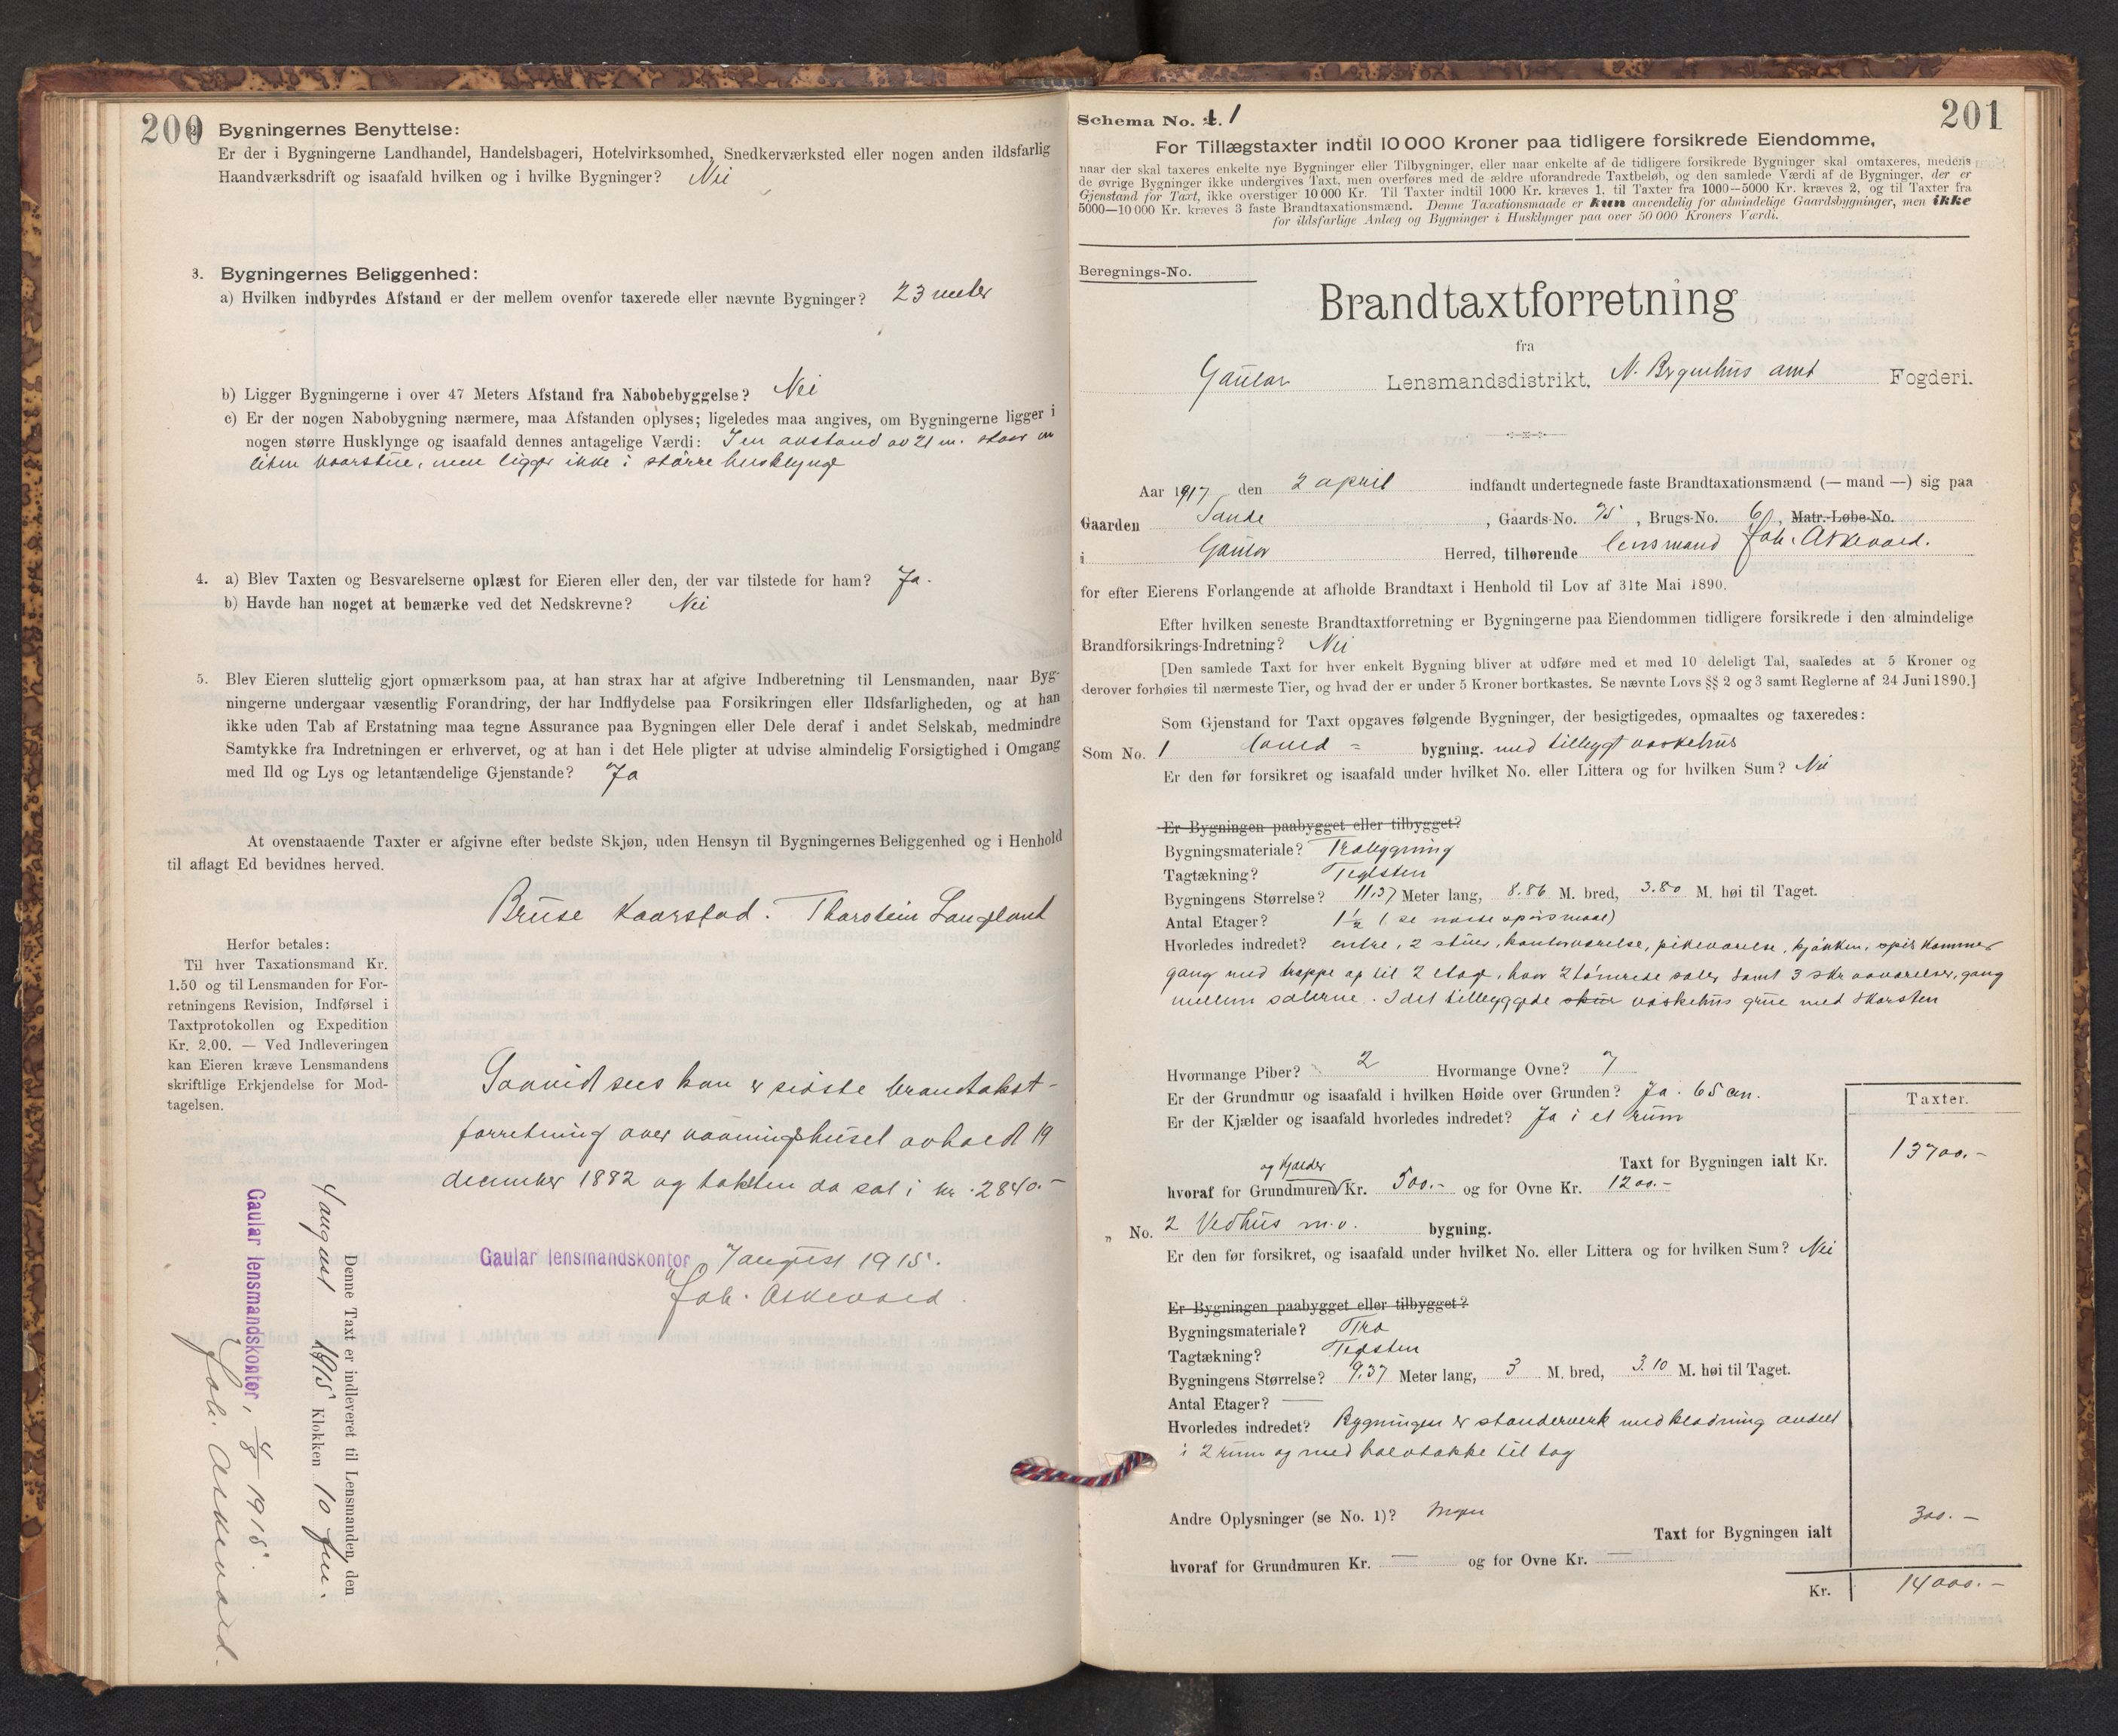 200
2. Bygningernes Benyttelse:
Er der i Bygningerne Landhandel, Handelsbageri, Hotelvirksomhed, Snedkerværksted eller nogen anden ildsfarlig
Haandværksdrift og isaafald hvilken og i hvilke Bygninger? Nei
3. Bygningernes Beliggenhed:
a) Hvilken indbyrdes Afstand er der mellem ovenfor taxerede eller nævnte Bygninger? 23 meter
b) Ligger Bygningerne i over 47 Meters Afstand fra Nabobebyggelse? Nei
c) Er der nogen Nabobygning nærmere, maa Afstanden oplyses; ligeledes maa angives, om Bygningerne ligger i
nogen større Husklynge og isaafald dennes antagelige Værdi: I en avstand av 21 m. staar en
liten vaarstue, men ligger ikke i större husklynge
4. a) Blev Taxten og Besvarelserne oplæst for Eieren eller den, der var tilstede for ham? Ja.
b) Havde han noget at bemærke ved det Nedskrevne? Nei
5. Blev Eieren sluttelig gjort opmærksom paa, at han strax har at afgive Indberetning til Lensmanden, naar Byg-
ningerne undergaar væsentlig Forandring, der har Indflydelse paa Forsikringen eller Ildsfarligheden, og at han
ikke uden Tab af Erstatning maa tegne Assurance paa Bygningen eller Dele deraf i andet Selskab, medmindre
Samtykke fra Indretningen er erhvervet, og at han i det Hele pligter at udvise almindelig Forsigtighed i Omgang
med Ild og Lys og letantændelige Gjenstande? Ja
At ovenstaaende Taxter er afgivne efter bedste Skjøn, uden Hensyn til Bygningernes Beliggenhed og i Henhold
til aflagt Ed bevidnes herved.
Bruse Kaarstad. Thorstein Langeland
Herfor betales:
Til hver Taxationsmand Kr.
1.50 og til Lensmanden for For-
retningens Revision, Indførsel i
Taxtprotokollen og Expedition
Kr. 2.00. — Ved Indleveringen
kan Eieren kræve Lensmandens
skriftlige Erkjendelse for Mod-
tagelsen.
Saavidt sees kan er sidste brandtakst-
forretning over vaaningshuset avholdt 19
december 1882 og taksten da sat i kr. 2840.-
Gaular lensmandskontor 7 august 1915.
Joh. Askevold.
Denne Taxt er indleveret til Lensmanden, den
4 august 1915 Klokken 10 fm.
Gaular lensmandskontor, 4/8 1915.
Joh. Askevold.
201
Schema No. 4. 1
For Tillægstaxter indtil 10 000 Kroner paa tidligere forsikrede Eiendomme,
naar der skal taxeres enkelte nye Bygninger eller Tilbygninger, eller naar enkelte af de tidligere forsikrede Bygninger skal omtaxeres, medens
de øvrige Bygninger ikke undergives Taxt, men overføres med de ældre uforandrede Taxtbeløb, og den samlede Værdi af de Bygninger, der er
Gjenstand for Taxt, ikke overstiger 10 000 Kr. Til Taxter indtil 1000 Kr. kræves 1, til Taxter fra 1000—5000 Kr. kræves 2, og til Taxter fra
5000—10 000 Kr. kræves 3 faste Brandtaxationsmænd. Denne Taxationsmaade er kun anvendelig for almindelige Gaardsbygninger, men ikke
for ildsfarlige Anlæg og Bygninger i Husklynger paa over 50 000 Kroners Værdi.
Beregnings-No.
Brandtaxtforretning
fra
Gaular Lensmandsdistrikt, N. Bergenhus amt Fogderi.
Aar 1917 den 2 april indfandt undertegnede faste Brandtaxationsmænd (— mand —) sig paa
Gaarden Sande, Gaards-No. 75, Brugs-No. 6, Matr.-Løbe-No.
i Gaular Herred, tilhørende lensmand Joh. Askevold.
for efter Eierens Forlangende at afholde Brandtaxt i Henhold til Lov af 31te Mai 1890.
Efter hvilken seneste Brandtaxtforretning er Bygningerne paa Eiendommen tidligere forsikrede i den almindelige
Brandforsikrings-Indretning? Nei
[Den samlede Taxt for hver enkelt Bygning bliver at udføre med et med 10 deleligt Tal, saaledes at 5 Kroner og
derover forhøies til nærmeste Tier, og hvad der er under 5 Kroner bortkastes. Se nævnte Lovs §§ 2 og 3 samt Reglerne af 24 Juni 1890.]
Som Gjenstand for Taxt opgaves følgende Bygninger, der besigtigedes, opmaaltes og taxeredes:
Som No. 1 bygning. med tilbygt vaskehus
Er den før forsikret og isaafald under hvilket No. eller Littera og for hvilken Sum? Nei
Er Bygningen paabygget eller tilbygget?
Bygningsmateriale? Træbygning
Tagtækning? Teglsten
Bygningens Størrelse? 11.37 Meter lang, 8.86 M. bred, 3.80 M. høi til Taget.
Antal Etager? 1 ½ (se næste spörsmaal)
Hvorledes indredet? entre, 2 stuer, kontorværelse, pikeværelse, kjökken, spiskammer
gang med trappe op til 2 etage, hvor 2 tömrede saler samt 3 skraaværelser, gang
mellem salerne. I det tilbyggede skur vaskehus grue med skorsten
Hvormange Piber? 2 Hvormange Ovne? 7
Er der Grundmur og isaafald i hvilken Høide over Grunden? Ja. 65 cm.
Er der Kjælder og isaafald hvorledes indredet? Ja i et rum
Taxter.
Taxt for Bygningen ialt Kr. 13700.-
og kjælder
hvoraf for Grundmuren Kr. 500.- og for Ovne Kr. 1200.-
„ No. 2 Vedhus m.v. bygning.
Er den før forsikret, og isaafald under hvilket No. eller Littera og for hvilken Sum? Nei
Er Bygningen paabygget eller tilbygget?
Bygningsmateriale? Træ
Tagtækning? Teglsten
Bygningens Størrelse? 9.37 Meter lang, 3 M. bred, 3.10 M. høi til Taget.
Antal Etager? —
Hvorledes indredet? Bygningen er standerverk med klædning avdelt
i 2 rum og med halvtække til tag
Andre Oplysninger (se No. 1)? Ingen
Taxt for Bygningen ialt 300.-
hvoraf for Grundmuren Kr. — og for Ovne Kr. —
Kr. 14000.-